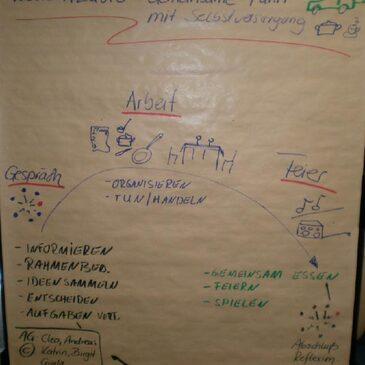 Gemeinsame Fahrt
mit Selbstversorgung
Arbeit
Gespräch
Feier
- ORGANISIEREN
- TUN/HANDELN
- INFORMIEREN
- RAHMENBED.
- IDEEN SAMMELN
- ENTSCHEIDEN
- AUFGABEN VERT.
- GEMEINSAM ESSEN
- FEIERN
- SPIELEN
Abschluß
Reflexion
AG Cleo, Andreas
© Katrin, Birgit